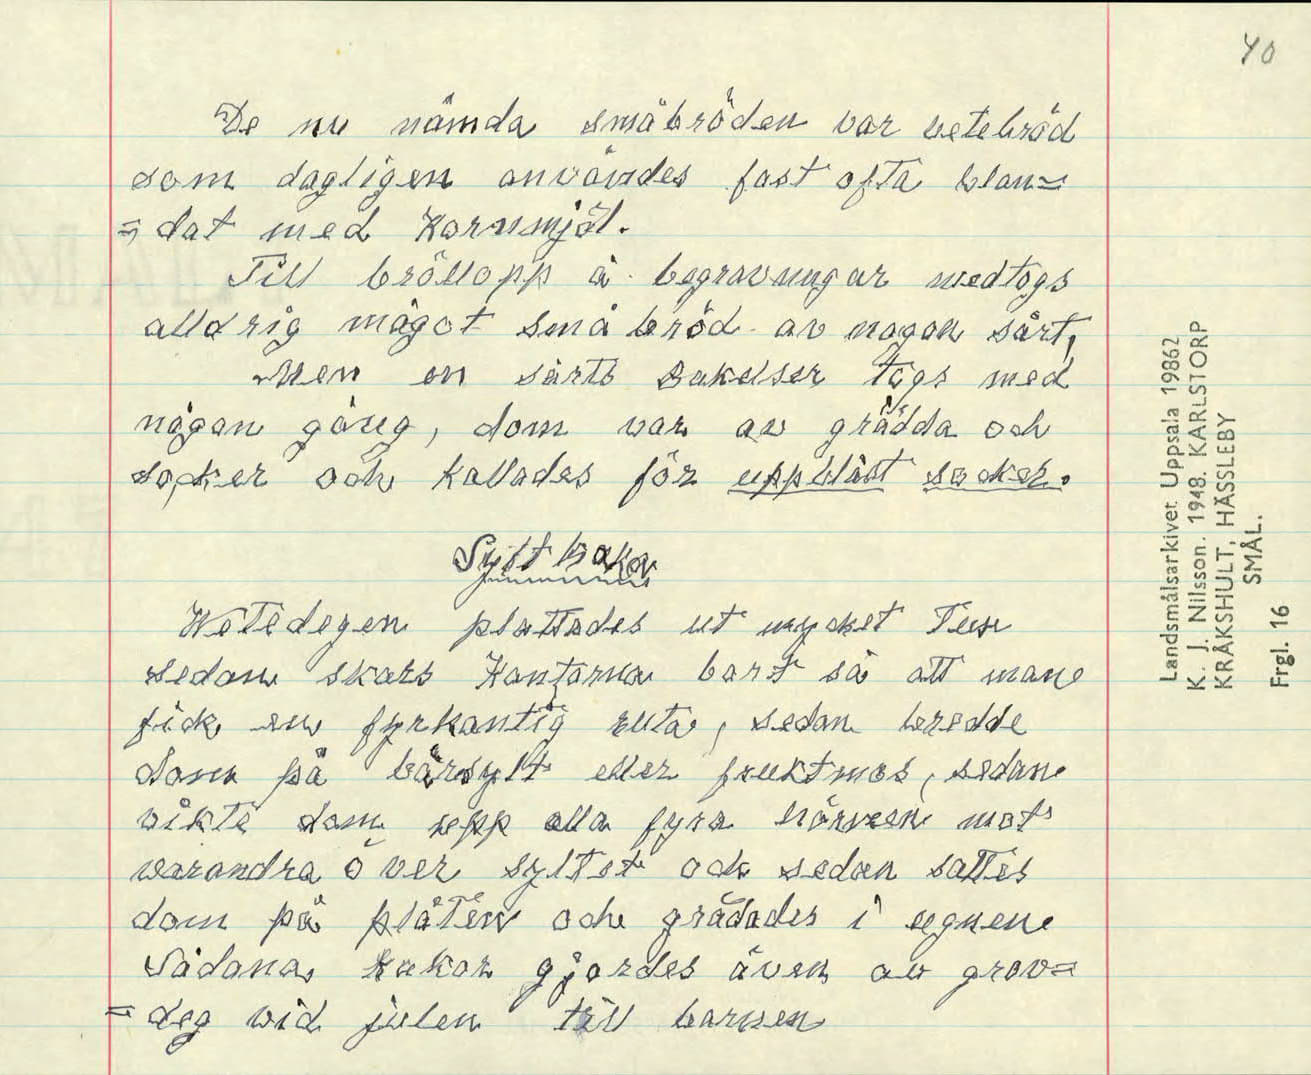 40
De nu nämda småbröden var vetebröd
som dagligen användes fast ofta blan=
= dat med Kornmjöl.
Till bröllopp å begravningar medtogs
alldrig något små bröd av nogon sårt,
Men en sårts Bakelser togs med
någon gång, dom var av grädda och
socker och kallades för uppblåst socker.
Sylt kakor
Wetedegen plattades ut mycket Tun
sedan skars Kanterna bort så att man
fick en fyrkantig ruta, sedan bredde
dom på bärsylt eller fruktmos, sedan
vikte dom upp alla fyra hörnen mot
varandra över syltet och sedan sattes
dom på plåten och gräddades i ugnen
Sådana kakor gjordes även av grov=
= deg vid julen till barnen
Landsmålsarkivet Uppsala 19862
K. J. Nilsson. 1948. KARLSTORP
KRÅKSHULT, HÄSSLEBY
SMÅL.
Frgl. 16